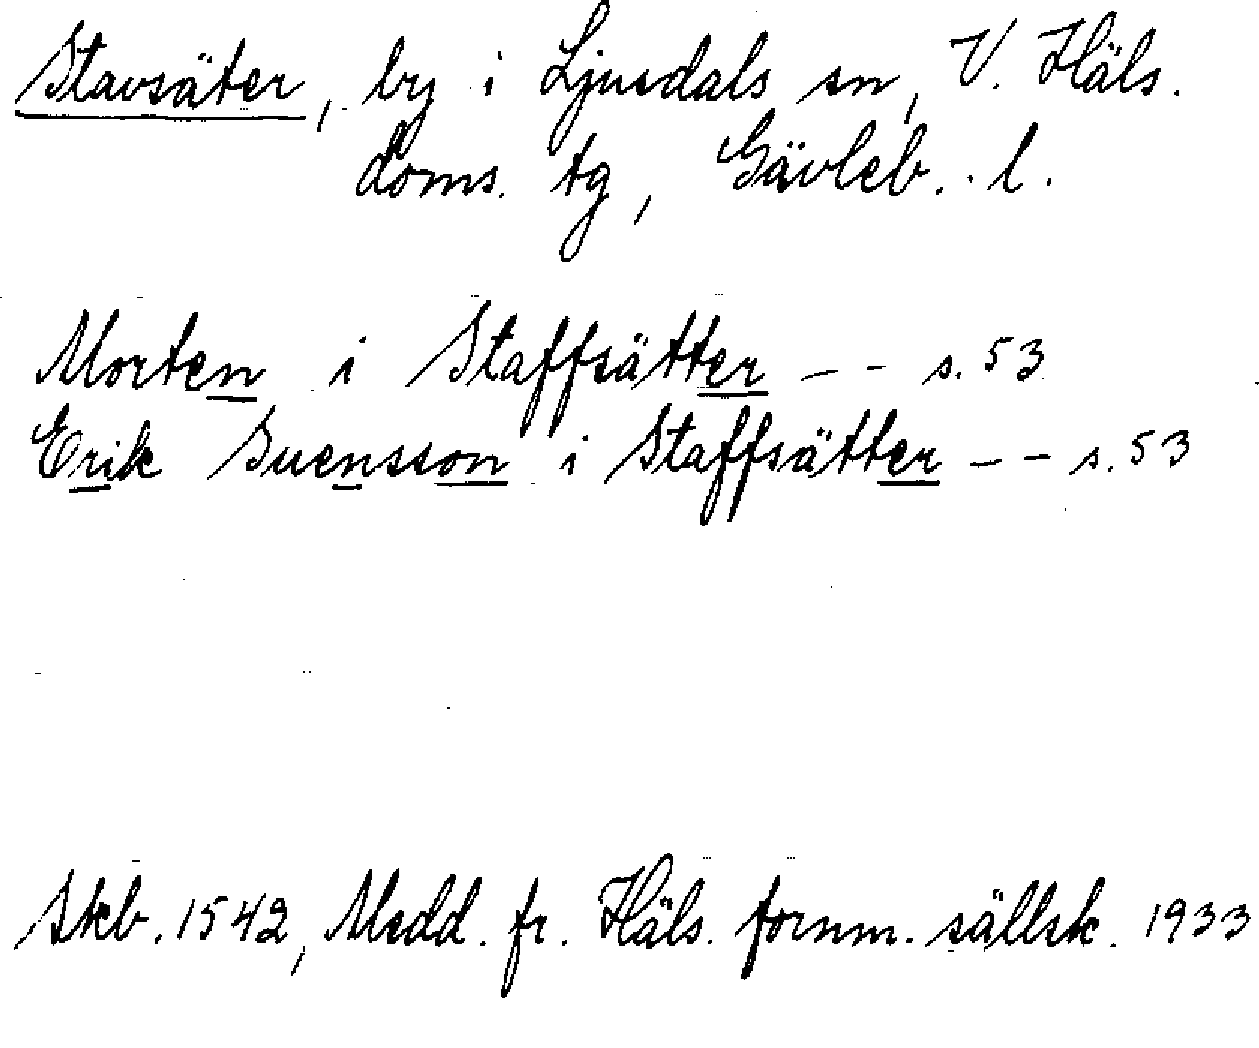 Stavsäter, by i Ljusdals sn, V. Häls.
doms. tg, Gävleb. l.
Morten i Staffsätter -- s. 53
Erik Suensson i Staffsätter -- s. 53
Skb. 1542, Medd. fr. Häls. fornm. sällsk. 1933